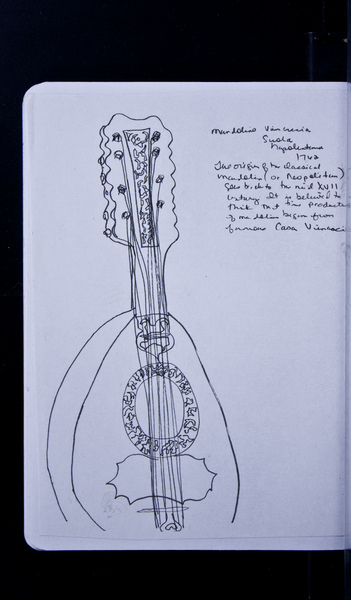 Mandolino Vinaccia
Scuola
Napoletana
1762
The origin of the classical
Mandolin (or Neopolitan)
goes back to the mid XVII
century. It is believed to
think that this production
of mandolin began from
famous Casa Vinaccia